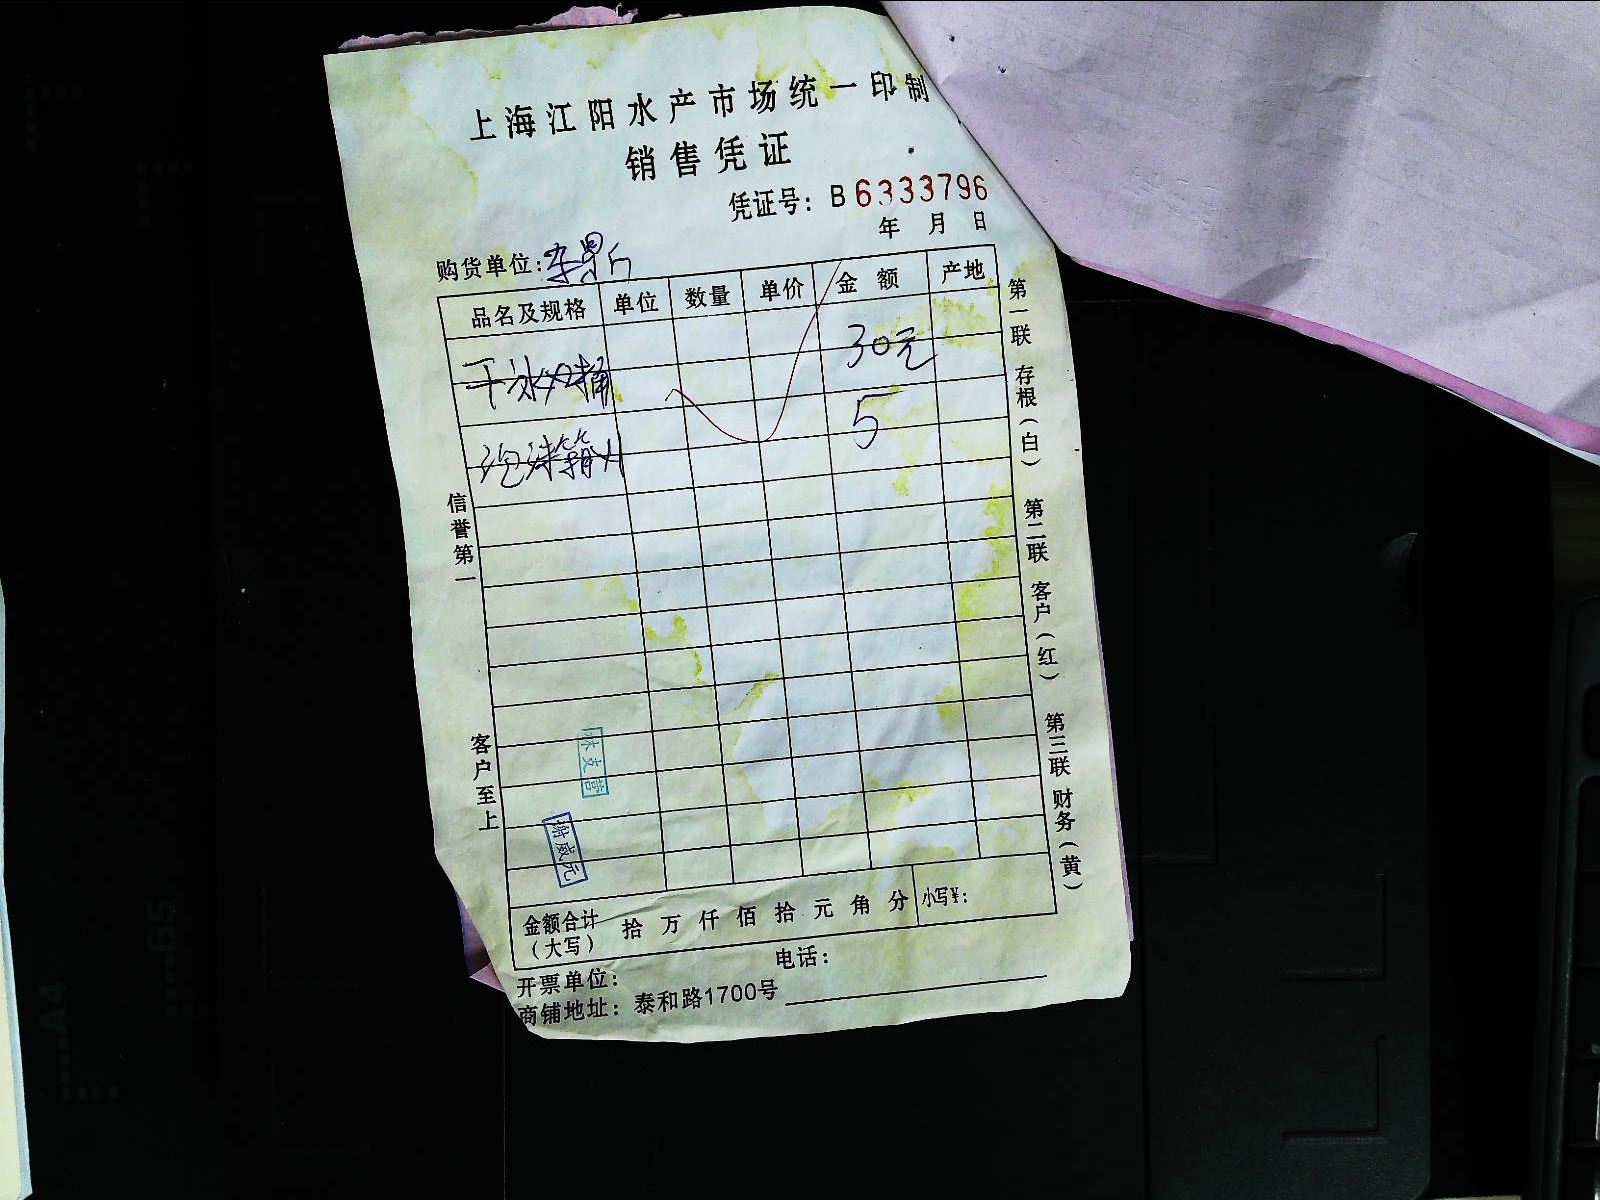 上海江阳水产市场统一印制
销售凭证
凭证号：B 6333796
年 月 日
购货单位：
品名及规格 单位 数量 单价 金额 产地
干冰 桶 30元
泡沫箱 5
信誉第一
客户至上
第一联 存根（白） 第二联 客户（红） 第三联 财务（黄）
谢威元
金额合计（大写） 拾 万 仟 佰 拾 元 角 分 小写¥：
开票单位： 电话：
商铺地址：泰和路1700号
A4